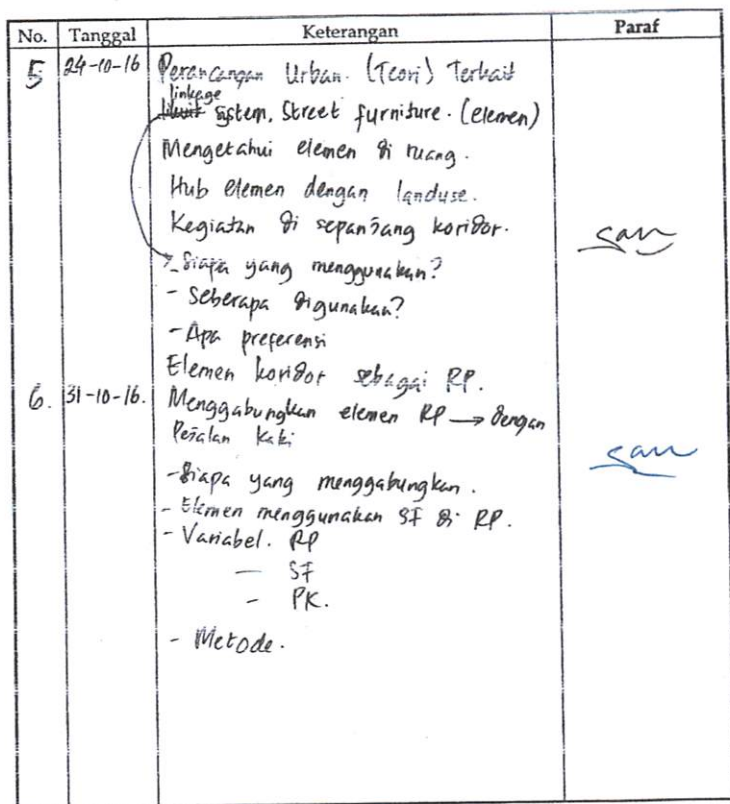 No. Tanggal Keterangan Paraf
5 24-10-16 Perancangan Urban. (Teori) Terkait
linkage
system, Street furniture. (elemen)
Mengetahui elemen di ruang.
Hub elemen dengan landuse.
Kegiatan di sepanjang koridor.
- Siapa yang menggunakan?
- Seberapa digunakan?
- Apa preferensi
Elemen koridor sebagai RP.
6. 31-10-16. Menggabungkan elemen RP → dengan
Pejalan kaki
- Siapa yang menggabungkan.
- Elemen menggunakan SF di RP.
- Variabel. RP
- SF
- PK.
- Metode.